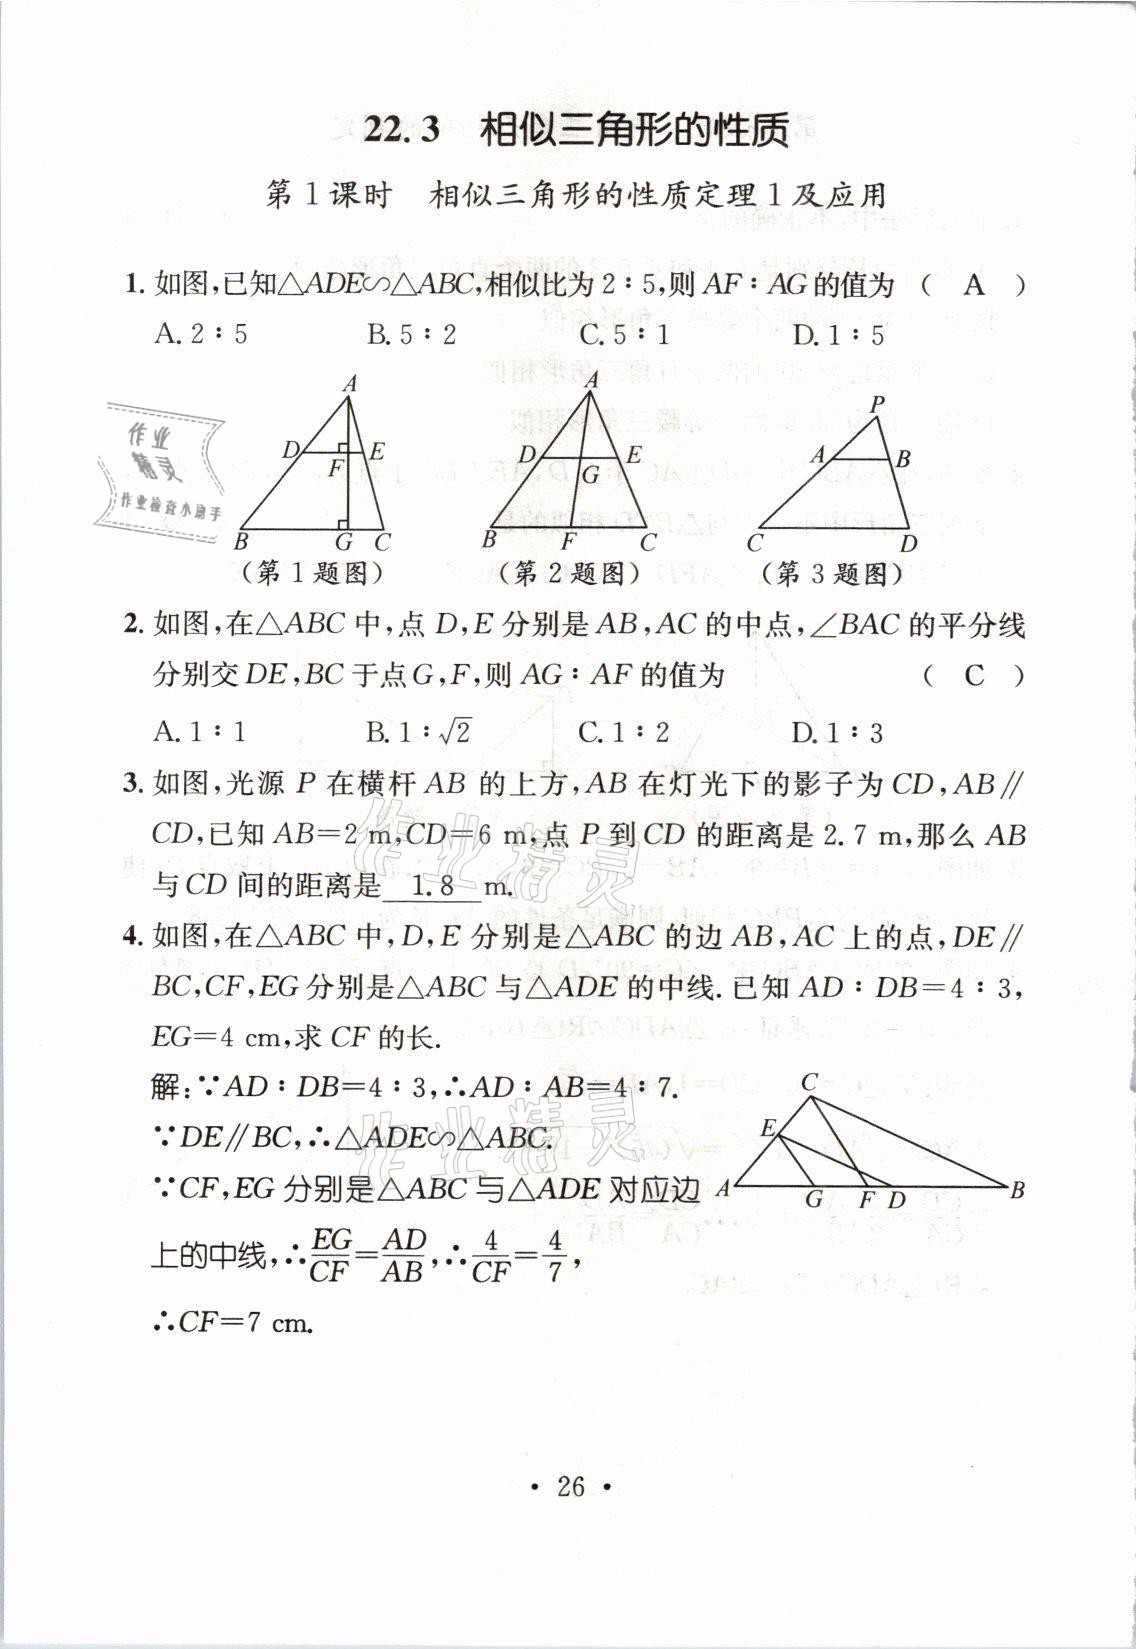 22.3 相似三角形的性质
第1课时 相似三角形的性质定理1及应用
1. 如图,已知△ADE∽△ABC,相似比为2∶5,则AF∶AG的值为 ( A )
A. 2∶5 B. 5∶2 C. 5∶1 D. 1∶5
A
D E
F
B G C
(第1题图)
A
D E
G
B F C
(第2题图)
P
A B
C D
(第3题图)
作业
精灵
作业检查小助手
2. 如图,在△ABC中,点D,E分别是AB,AC的中点,∠BAC的平分线
分别交DE,BC于点G,F,则AG∶AF的值为 ( C )
A. 1∶1 B. 1∶√2 C. 1∶2 D. 1∶3
3. 如图,光源P在横杆AB的上方,AB在灯光下的影子为CD,AB∥
CD,已知AB=2 m,CD=6 m,点P到CD的距离是2.7 m,那么AB
与CD间的距离是 1.8 m.
作业精灵
4. 如图,在△ABC中,D,E分别是△ABC的边AB,AC上的点,DE∥
BC,CF,EG分别是△ABC与△ADE的中线.已知AD∶DB=4∶3,
EG=4 cm,求CF的长.
解:∵AD∶DB=4∶3,∴AD∶AB=4∶7.
∵DE∥BC,∴△ADE∽△ABC.
作业精灵
∵CF,EG分别是△ABC与△ADE对应边
上的中线,∴EG/CF=AD/AB,∴4/CF=4/7,
∴CF=7 cm.
C
E
A G F D B
· 26 ·